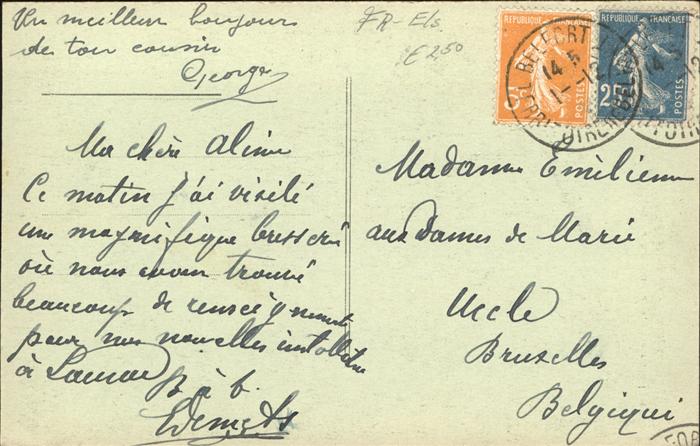 Un meilleur bonjour
de ton cousin
Georges
FR-Els
€ 2,50
Ma chère Aline
Ce matin j'ai visité
une magnifique brasserie
où nous avons trouvé
beaucoup de renseignements
pour nos nouvelles installations
à
B à t.
REPUBLIQUE FRANÇAISE
5c
POSTES
REPUBLIQUE FRANÇAISE
25c
POSTES
BELFORT
14 5
1-12
TRE DE BELFORT
Madame Emilienne
aux Dames de Marie
Uccle
Bruxelles
Belgique